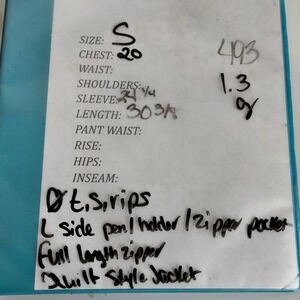 SIZE: S
CHEST: 20 493
WAIST:
SHOULDERS: 1.3
SLEEVE: 21 1/4
LENGTH: 30 3/8
PANT WAIST:
RISE:
HIPS:
INSEAM:
Ø t,s,rips
L side pen/holder/zipper pocket
Full length zipper
Quilt Style Jacket